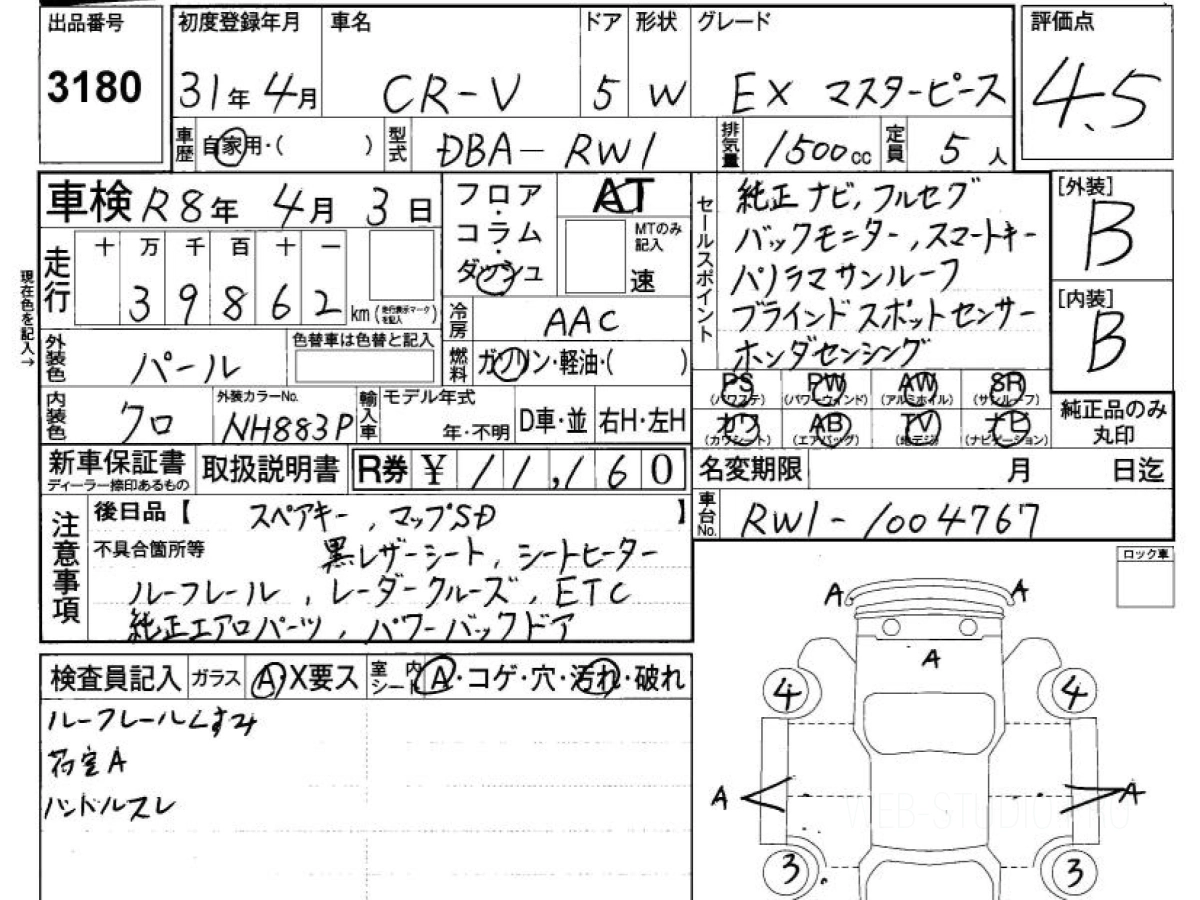 出品番号
3180
初度登録年月
31年4月
車名
CR-V
ドア
5
形状
W
グレード
EX マスターピース
評価点
4.5
車歴
自家用・( )
型式
DBA-RW1
排気量
1500cc
定員
5人
車検 R8年 4月 3日
フロア・コラム・ダッシュ
AT
MTのみ記入
速
セールスポイント
純正ナビ,フルセグ
バックモニター,スマートキー
パノラマサンルーフ
ブラインドスポットセンサー
ホンダセンシング
[外装]
B
[内装]
B
現在色を記入→
走行
十 万 千 百 十 一
3 9 8 6 2 km
(走行表示マークを記入)
冷房
AAC
外装色
パール
色替車は色替と記入
燃料
ガソリン・軽油・( )
内装色
クロ
外装カラーNo.
NH883P
輸入車
モデル年式
年・不明
D車・並
右H・左H
PS (パワステ)
PW (パワーウィンド)
AW (アルミホイル)
SR (サンルーフ)
カワ (カワシート)
AB (エアバッグ)
TV (地デジ)
ナビ (ナビゲーション)
純正品のみ丸印
新車保証書
ディーラー捺印あるもの
取扱説明書
R券 ¥11,160
名変期限 月 日迄
車台No.
RW1-1004767
注意事項
後日品【 スペアキー,マップSD 】
不具合箇所等
黒レザーシート,シートヒーター
ルーフレール,レーダークルーズ,ETC
純正エアロパーツ,パワーバックドア
ロック車
検査員記入
ガラス
A・X要ス
室内シート
A・コゲ・穴・汚れ・破れ
ルーフレールくすみ
荷室A
ハンドルスレ
A A
A
4 4
A A
3 3
WEB-STUDIO.PRO